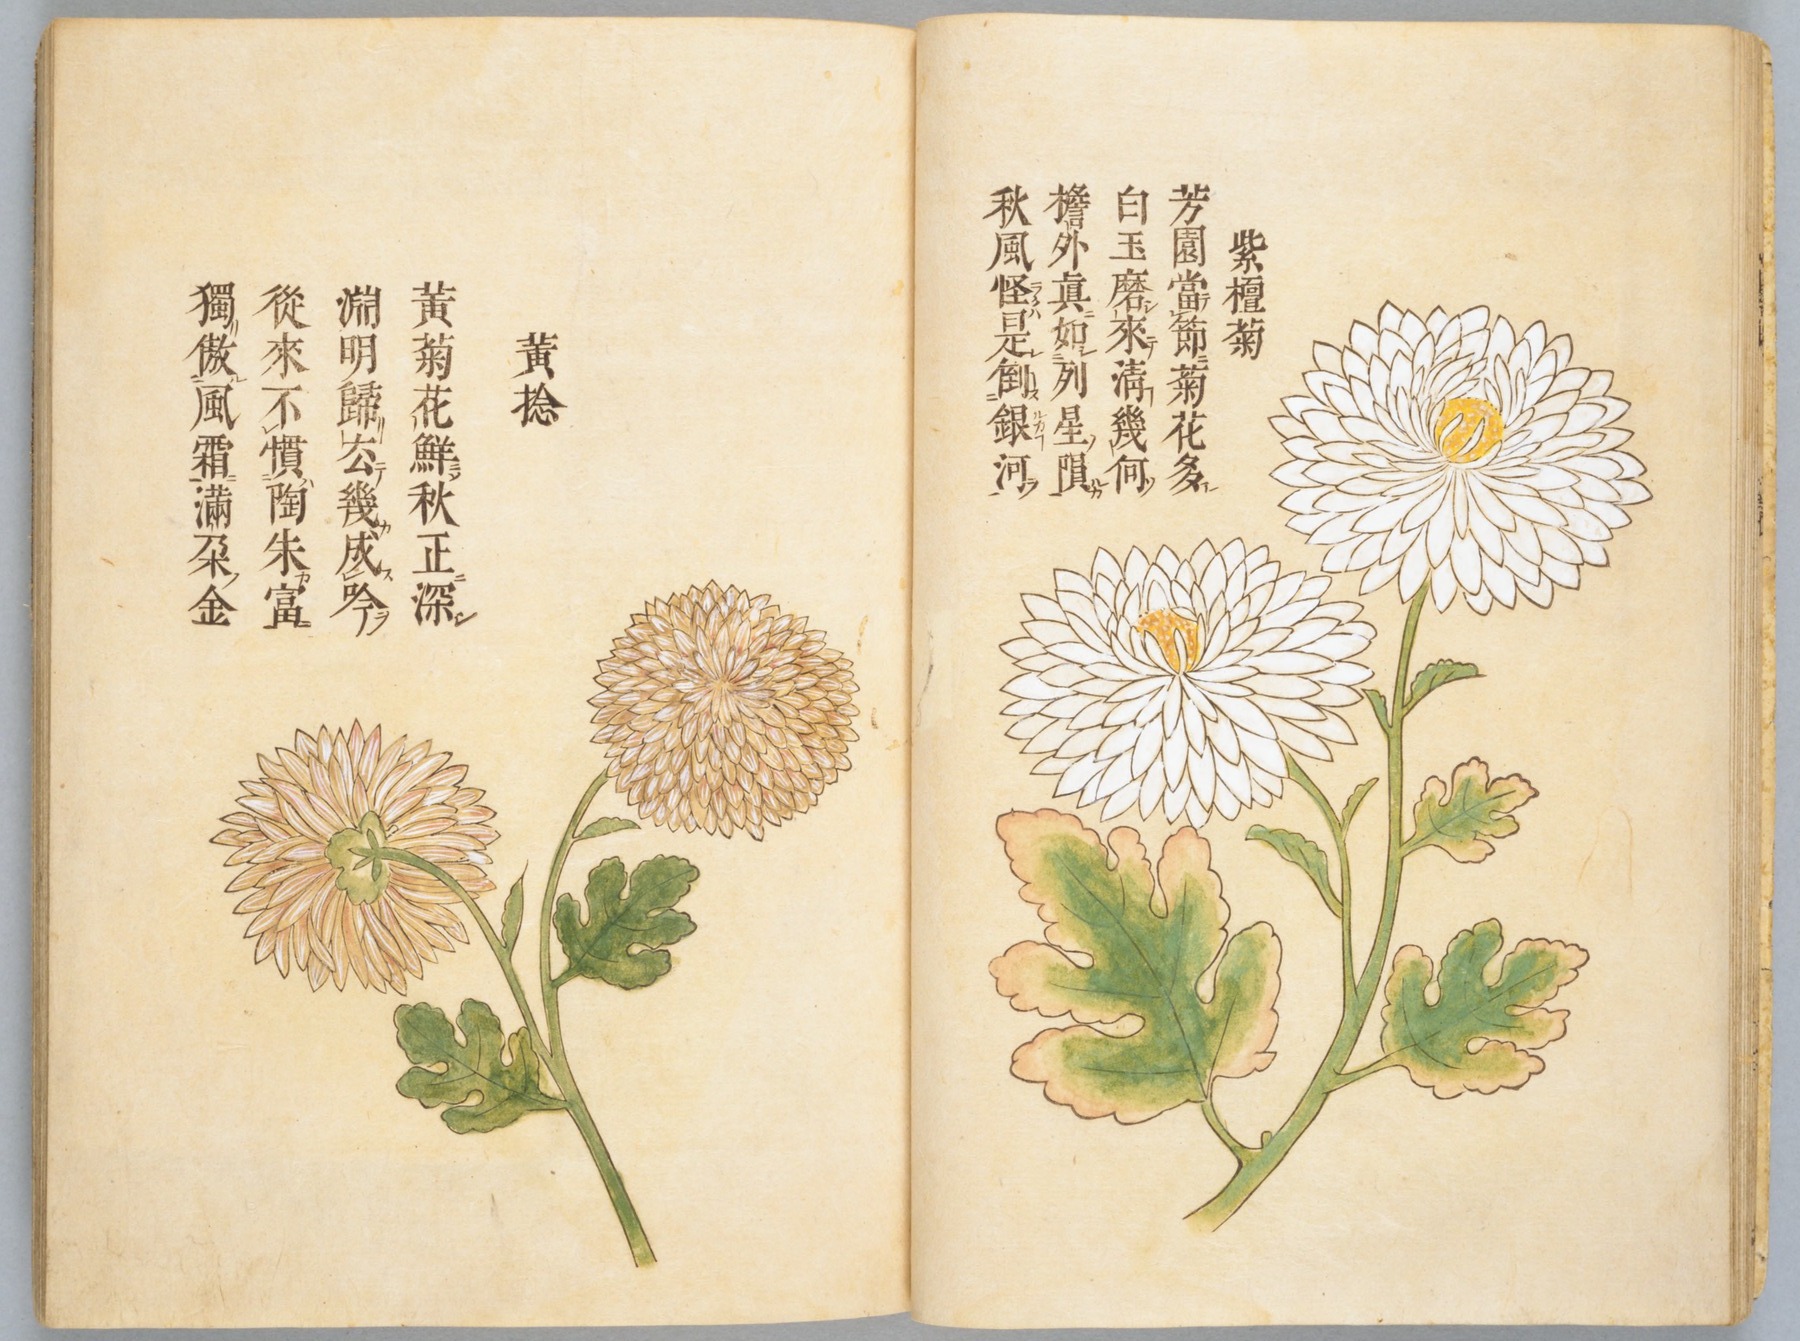 紫檀菊
芳園當節菊花多
白玉磨來清幾何
檐外眞如列星隕
秋風怪是倒銀河
黃捻
黃菊花鮮秋正深
淵明歸去幾成吟
從來不慣陶朱富
獨傲風霜滿朶金